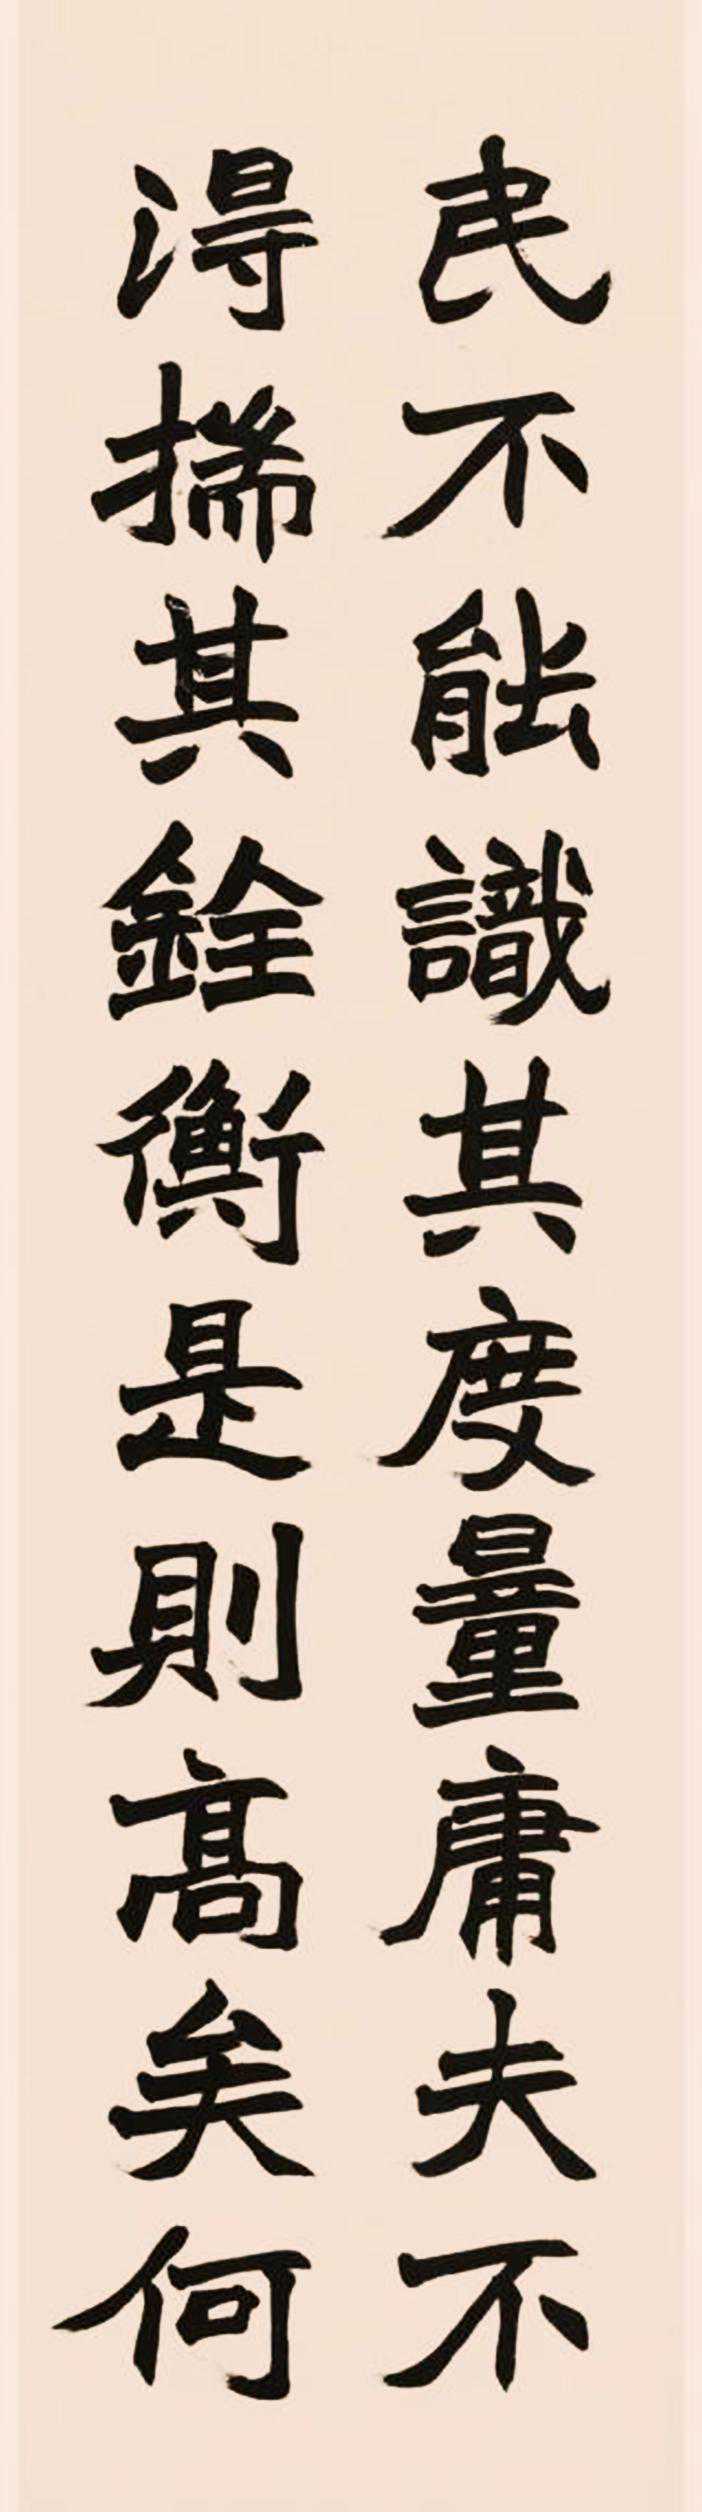 民不能識其度量庸夫不
淂揣其銓衡是則高矣何